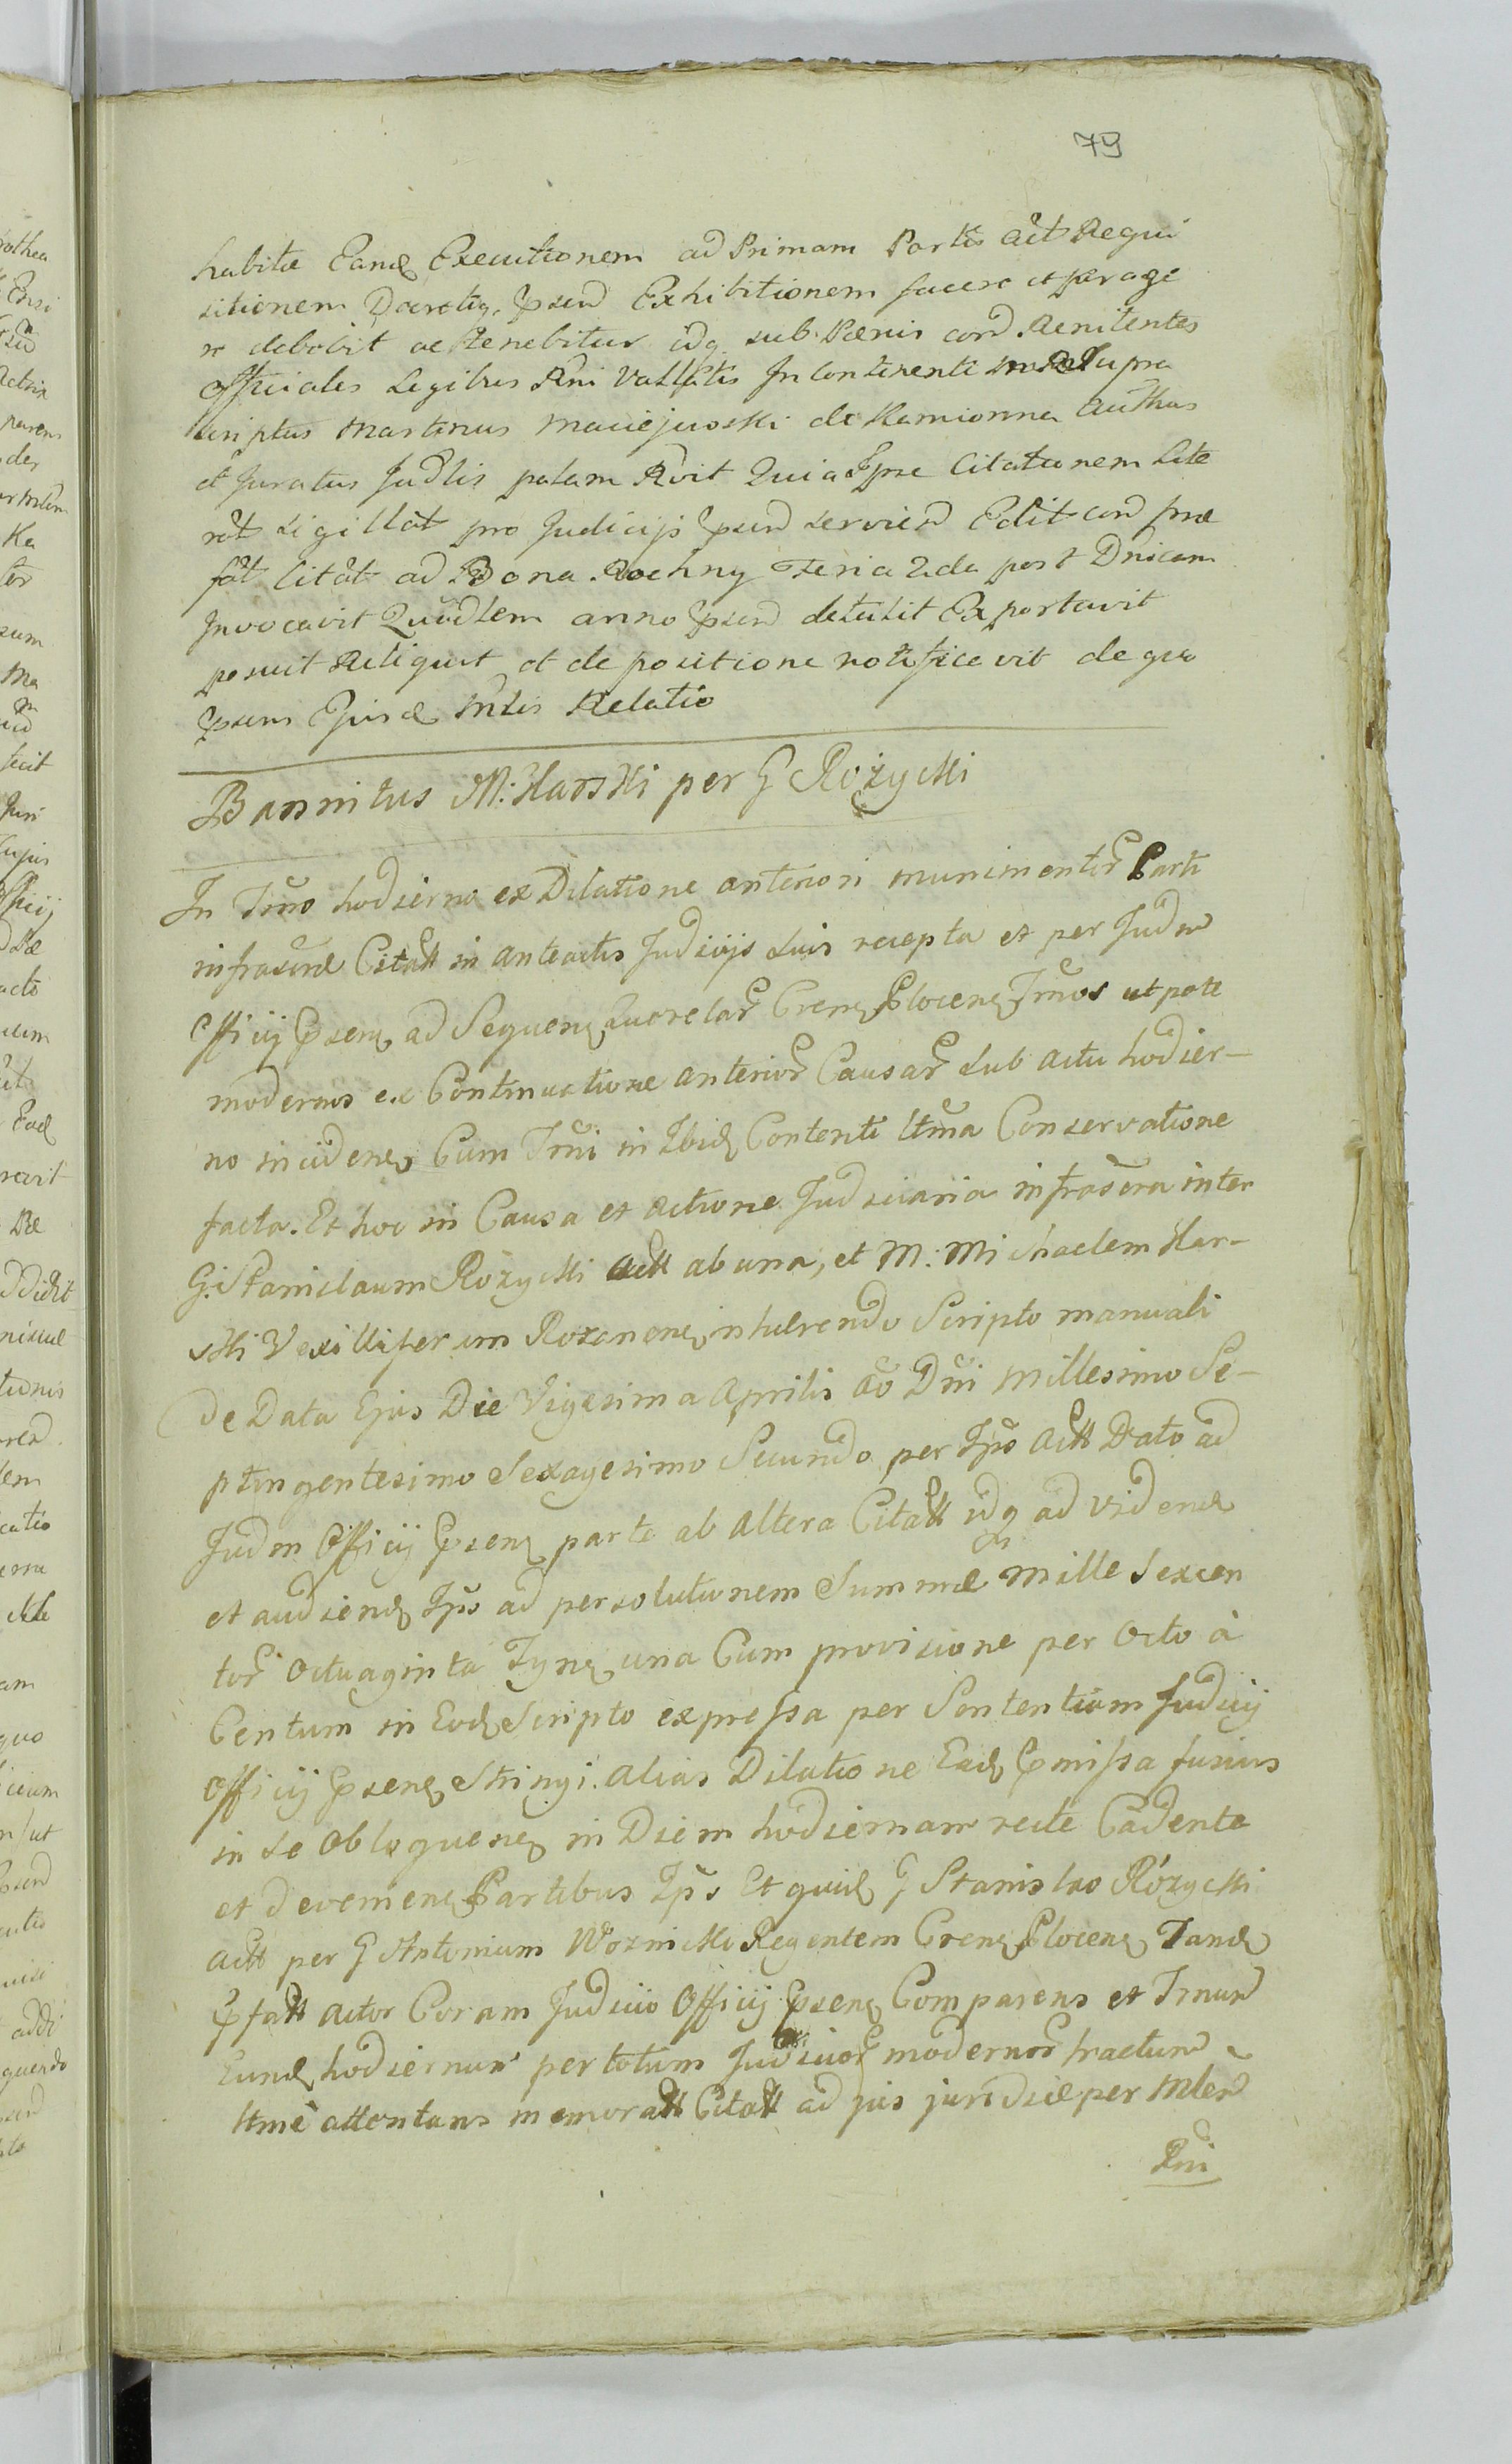 79
habitæ Eand Executionem ad Primam Partis act Requi
sitionem Decretiq, Psend Exhibitionem facere et perage
re debebit ac tenebitur idq sub Pænis cond Renitentes
officiales Legibus Rni Vallatis In Continenti supra
scriptus Martinus Maciejuoski de Kamionna authus
et Juratus Judlis palam Rvit Quia Ipse Citationem Lite
rat sigillat pro Judicijs Psend serviend Edit cond præ
fat Citat ad Bona Rochny Feria 2da post Dnicam
Invocavit Quadlem anno Psend detulit Exportavit
posuit Reliquit et de positione notificavit de quo
Psens Ejusd Mlis Relatio
Bannitus M: Harski per G Rożycki
In Tmo hodierno ex Dilatione anteriori munimentor Parti
infrascræ Citatt in anteactis Judicijs suis recepta et per Judm
Officij Psens ad Sequens Querelar Crens Plocens Tmos ut pote
modernos ex Continuatione anterior Causar sub actu hodier-
no incidens Cum Tmi in Ibid Contenti ltma Conservatione
facta. Et hoc in Causa et actione Judiciaria infrascra inter
G. Stanislaum Rożycki actt ab una, et M: Michaelem Har-
ski Vexilliferum Rozanens inhærendo Scripto manuali
de Data Ejus Die Vigesima Aprilis ao Dni Millesimo Se-
ptingentesimo Sexagesimo Secundo per Ips actt Dato ad
Judm Officij Psens parte ab altera Citatt idq ad vidend
et audiend Ips ad persolutionem Summæ Mille Sexcen
tor Octuaginta Tynf una Cum provisione per Octo à
Centum in Eod Scripto expressa per Sententiam Judicij
Officij Psens Stringi. alias Dilatione Ead Pmissa fusius
in se Obloquens in Diem hodiernam recte Cadente
et Deveniens Partibus Ips Et quid G Stanislao Rózycki
actt per G Antonium Woznicki Regentem Crens Plocens Tand
Pfatt actor Coram Judicio Officij Psens Comparens et Tmum
Eund hodiernum per totum Judicior modernor tractum
ltmè attentans memoratt Citatt ad jus juridicè per Mlem
Rni